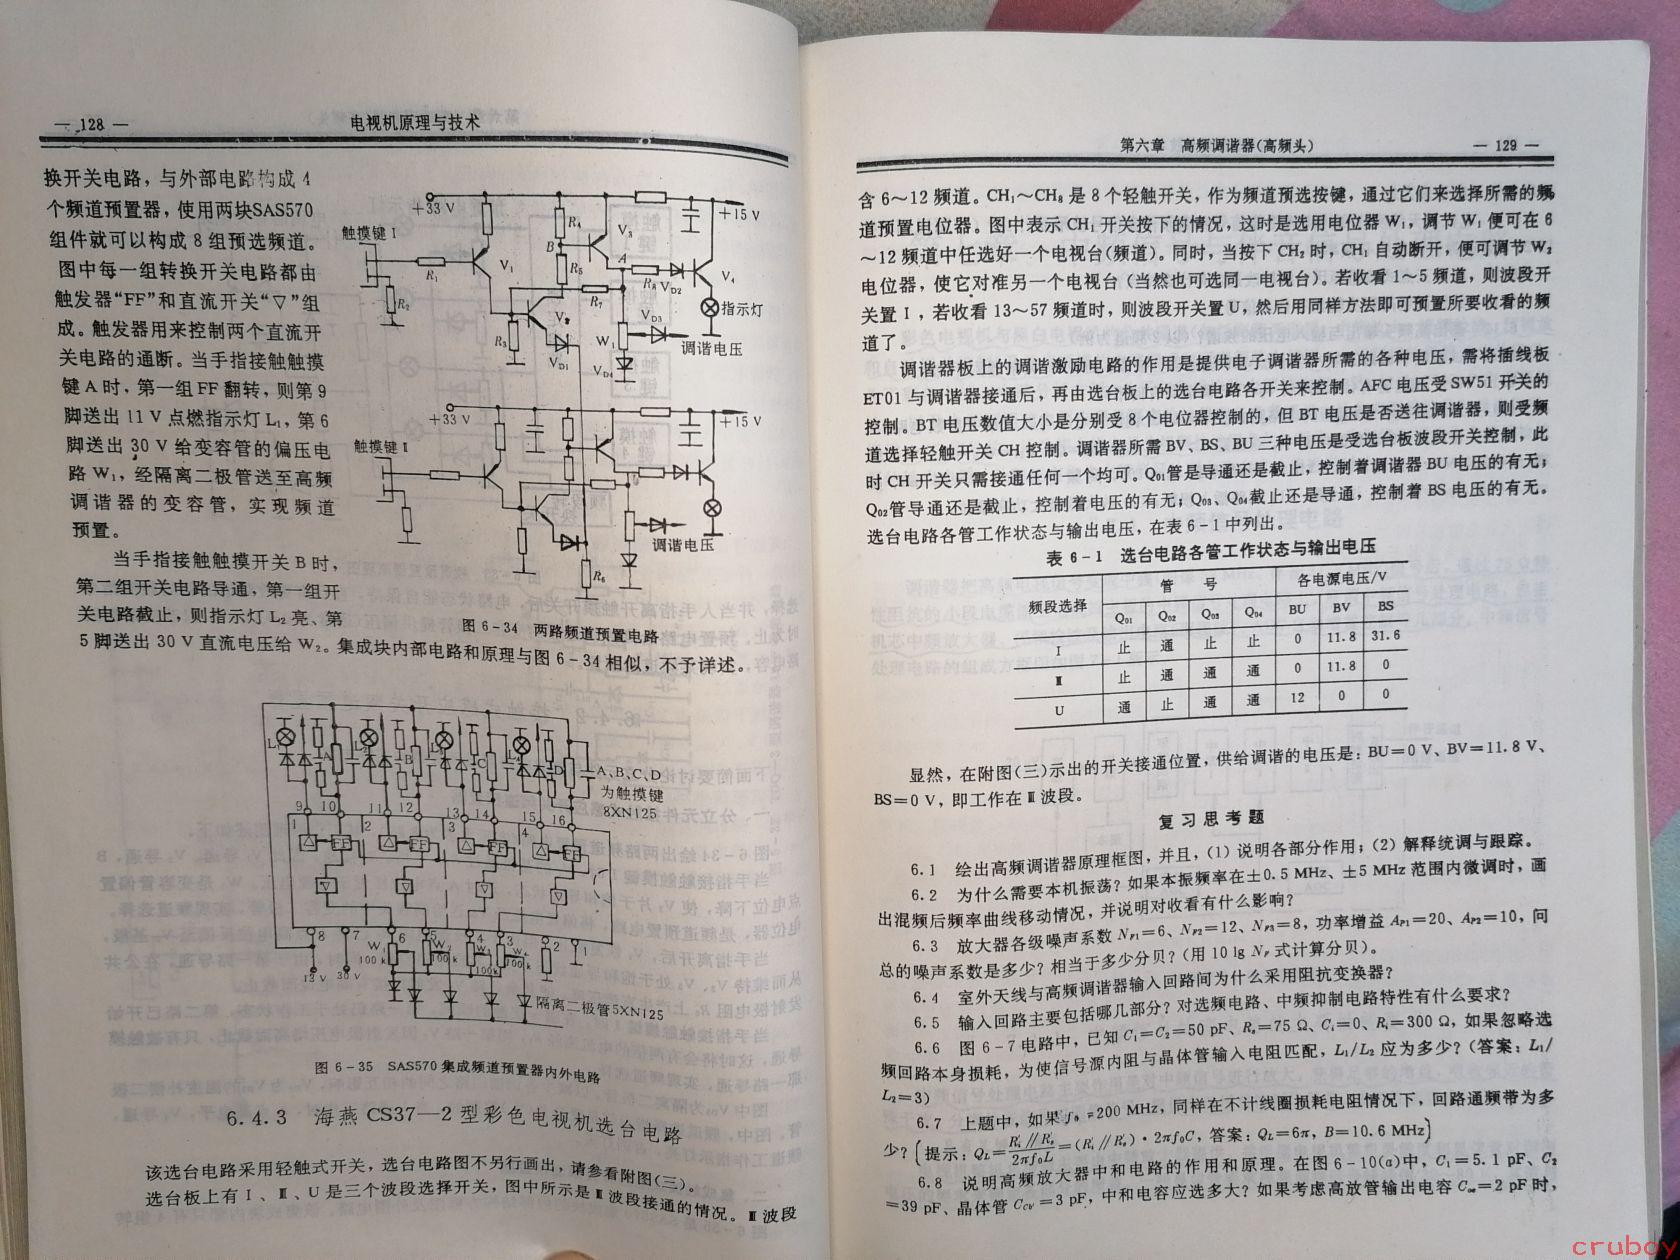 — 128 —
电视机原理与技术
换开关电路，与外部电路构成 4
个频道预置器，使用两块SAS570
组件就可以构成 8 组预选频道。
图中每一组转换开关电路都由
触发器“FF”和直流开关“▽”组
成。触发器用来控制两个直流开
关电路的通断。当手指接触触摸
键 A 时，第一组 FF 翻转，则第 9
脚送出 11 V 点燃指示灯 L₁，第 6
脚送出 30 V 给变容管的偏压电
路 W₁，经隔离二极管送至高频
调谐器的变容管，实现频道
预置。
当手指接触触摸开关 B 时，
第二组开关电路导通，第一组开
关电路截止，则指示灯 L₂ 亮、第
5 脚送出 30 V 直流电压给 W₂。集成块内部电路和原理与图 6-34 相似，不予详述。
+33 V
+15 V
触摸键 I
R₁
R₂
R₃
R₄
R₅
R₇
R₈
B
A
V₁
V₃
V₄
V_D1
V_D2
V_D3
V_D4
W₁
指示灯
调谐电压
+33 V
+15 V
触摸键 Ⅱ
调谐电压
R₆
图 6-34 两路频道预置电路
A、B、C、D
为触摸键
8XN125
A
B
C
D
9 10 11 12 13 14 15 16
1 2 3 4
FF FF FF FF
8 7 6 5 4 3 2 1
13 V 30 V
100 k 100 k 100 k 100 k
隔离二极管5XN125
图 6-35 SAS570 集成频道预置器内外电路
6.4.3 海燕 CS37—2 型彩色电视机选台电路
该选台电路采用轻触式开关，选台电路图不另行画出，请参看附图(三)。
选台板上有 Ⅰ、Ⅲ、U 是三个波段选择开关，图中所示是 Ⅲ 波段接通的情况。Ⅲ 波段
第六章 高频调谐器(高频头)
— 129 —
含 6～12 频道。CH₁～CH₈ 是 8 个轻触开关，作为频道预选按键，通过它们来选择所需的频
道预置电位器。图中表示 CH₁ 开关按下的情况，这时是选用电位器 W₁，调节 W₁ 便可在 6
～12 频道中任选好一个电视台(频道)。同时，当按下 CH₂ 时，CH₁ 自动断开，便可调节 W₂
电位器，使它对准另一个电视台（当然也可选同一电视台）。若收看 1～5 频道，则波段开
关置 Ⅰ，若收看 13～57 频道时，则波段开关置 U，然后用同样方法即可预置所要收看的频
道了。
调谐器板上的调谐激励电路的作用是提供电子调谐器所需的各种电压，需将插线板
ET01 与调谐器接通后，再由选台板上的选台电路各开关来控制。AFC 电压受 SW51 开关的
控制。BT 电压数值大小是分别受 8 个电位器控制的，但 BT 电压是否送往调谐器，则受频
道选择轻触开关 CH 控制。调谐器所需 BV、BS、BU 三种电压是受选台板波段开关控制，此
时 CH 开关只需接通任何一个均可。Q₀₁管是导通还是截止，控制着调谐器 BU 电压的有无；
Q₀₂管导通还是截止，控制着电压的有无；Q₀₃、Q₀₄截止还是导通，控制着 BS 电压的有无。
选台电路各管工作状态与输出电压，在表 6-1 中列出。
表 6-1 选台电路各管工作状态与输出电压
频段选择 管 号 各电源电压/V
Q₀₁ Q₀₂ Q₀₃ Q₀₄ BU BV BS
Ⅰ 止 通 止 止 0 11.8 31.6
Ⅲ 止 通 通 通 0 11.8 0
U 通 止 通 通 12 0 0
显然，在附图(三)示出的开关接通位置，供给调谐的电压是：BU=0 V、BV=11.8 V、
BS=0 V，即工作在 Ⅲ 波段。
复习思考题
6.1 绘出高频调谐器原理框图，并且，(1) 说明各部分作用；(2) 解释统调与跟踪。
6.2 为什么需要本机振荡？如果本振频率在±0.5 MHz、±5 MHz 范围内微调时，画
出混频后频率曲线移动情况，并说明对收看有什么影响？
6.3 放大器各级噪声系数 N_F1=6、N_F2=12、N_F3=8，功率增益 A_P1=20、A_P2=10，问
总的噪声系数是多少？相当于多少分贝？(用 10 lg N_F 式计算分贝)。
6.4 室外天线与高频调谐器输入回路间为什么采用阻抗变换器？
6.5 输入回路主要包括哪几部分？对选频电路、中频抑制电路特性有什么要求？
6.6 图 6-7 电路中，已知 C₁=C₂=50 pF、Rₛ=75 Ω、Cᵢ=0、Rᵢ=300 Ω，如果忽略选
频回路本身损耗，为使信号源内阻与晶体管输入电阻匹配，L₁/L₂ 应为多少？(答案：L₁/
L₂=3)
6.7 上题中，如果 f₀=200 MHz，同样在不计线圈损耗电阻情况下，回路通频带为多
少？[提示：Q_L=R'ᵢ∥R'ₛ/2πf₀L=(R'ᵢ∥R'ₛ)·2πf₀C，答案：Q_L=6π，B=10.6 MHz]
6.8 说明高频放大器中和电路的作用和原理。在图 6-10(a)中，C₁=5.1 pF、C₂
=39 pF、晶体管 C_cv=3 pF，中和电容应选多大？如果考虑高放管输出电容 C_oe=2 pF 时，
cruboy